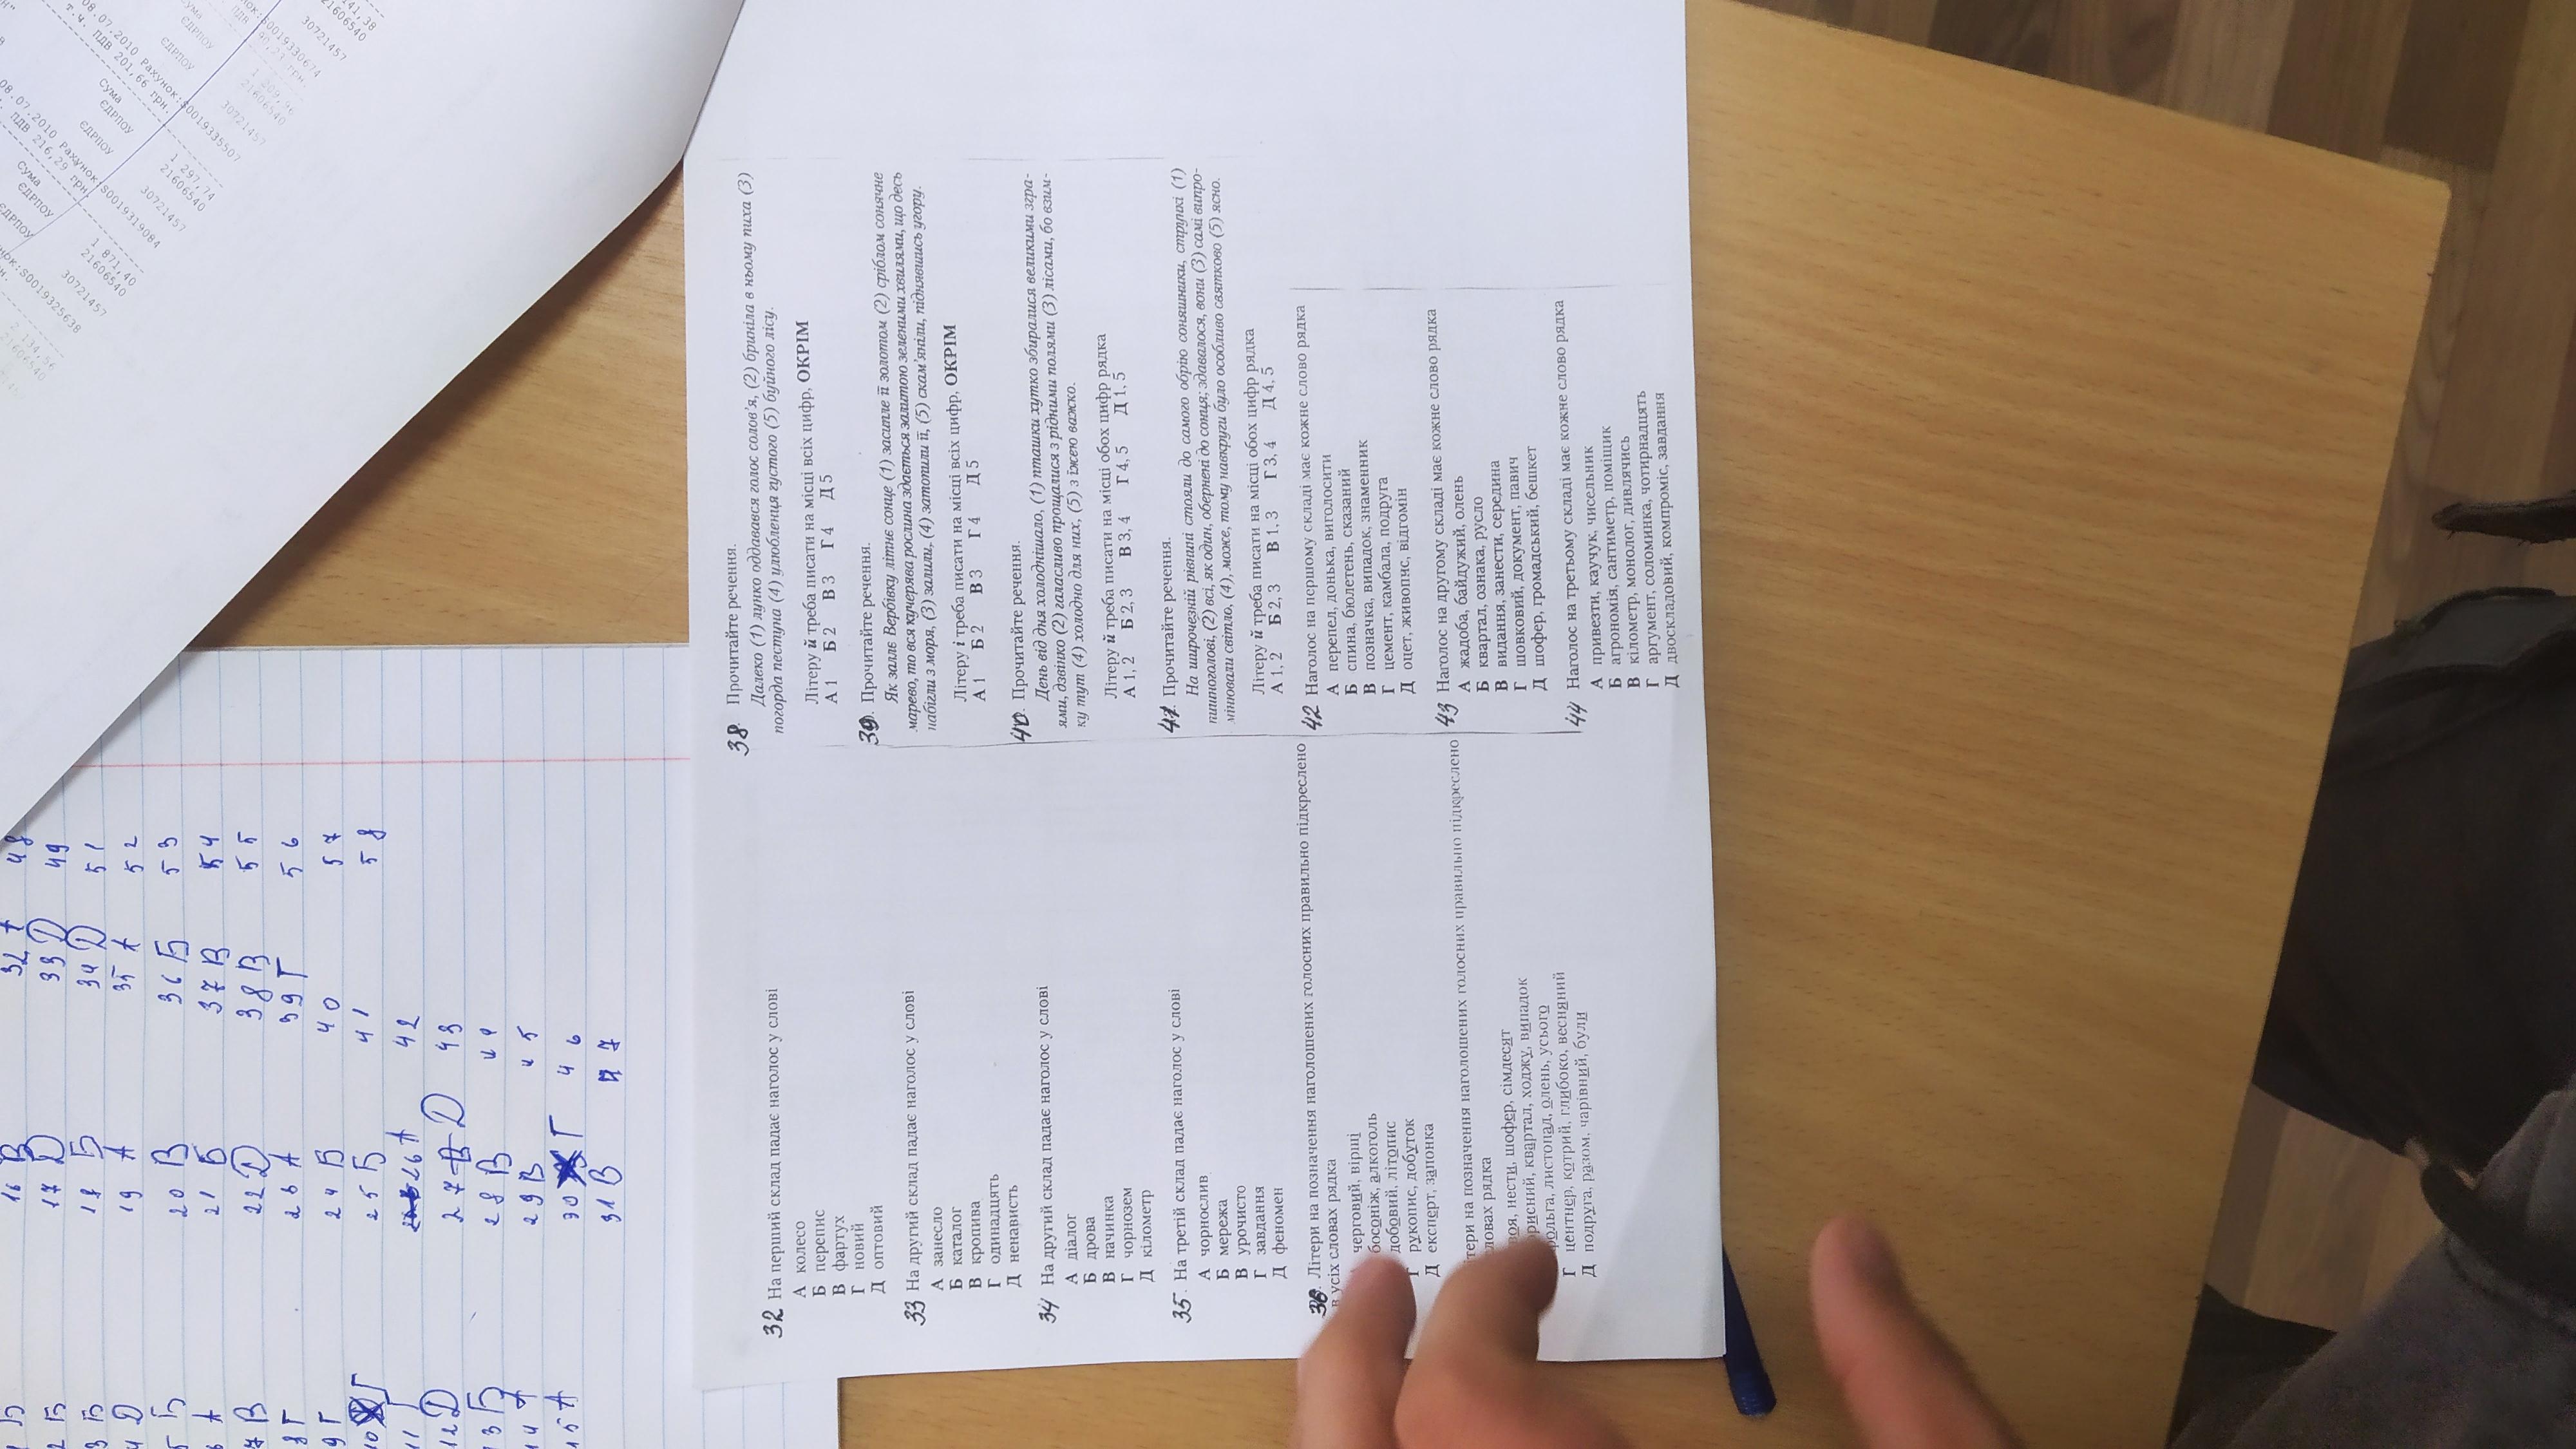 32 На перший склад падає наголос у слові
А колесо
Б перепис
В фартух
Г новий
Д оптовий
33 На другий склад падає наголос у слові
А занесло
Б каталог
В кропива
Г одинадцять
Д ненависть
34 На другий склад падає наголос у слові
А діалог
Б дрова
В начинка
Г чорнозем
Д кілометр
35. На третій склад падає наголос у слові
А чорнослив
Б мережа
В урочисто
Г завдання
Д феномен
36. Літери на позначення наголошених голосних правильно підкреслено
в усіх словах рядка
черговий, вірші
босоніж, алкоголь
добовий, літопис
Г рукопис, добуток
Д експерт, запонка
на позначення наголошених голосних правильно підкреслено
словах рядка
нести, шофер, сімдесят
квартал, ходжу, випадок
листопад, олень, усього
Г центнер, котрий, глибоко, весняний
Д подруга, разом, чарівний, були
38. Прочитайте речення.
Далеко (1) лунко оддавався голос солов'я, (2) бриніла в ньому тиха (3)
погорда пестуна (4) улюбленця густого (5) буйного лісу.
Літеру й треба писати на місці всіх цифр, ОКРІМ
А 1 Б 2 В 3 Г 4 Д 5
39. Прочитайте речення.
Як залле Вербівку літнє сонце (1) засипле її золотом (2) сріблом сонячне
марево, то вся кучерява рослина здається залитою зеленими хвилями, що десь
набігли з моря, (3) залили, (4) затопили її, (5) скам'яніли, піднявшись угору.
Літеру і треба писати на місці всіх цифр, ОКРІМ
А 1 Б 2 В 3 Г 4 Д 5
40. Прочитайте речення.
День від дня холоднішало, (1) пташки хутко збиралися великими згра-
ями, дзвінко (2) галасливо прощалися з рідними полями (3) лісами, бо взим-
ку тут (4) холодно для них, (5) з їжею важко.
Літеру й треба писати на місці обох цифр рядка
А 1, 2 Б 2, 3 В 3, 4 Г 4, 5 Д 1, 5
41. Прочитайте речення.
На широчезній рівнині стояли до самого обрію соняшники, стрункі (1)
пишноголові, (2) всі, як один, обернені до сонця; здавалося, вони (3) самі випро-
мінювали світло, (4), може, тому навкруги було особливо святково (5) ясно.
Літеру й треба писати на місці обох цифр рядка
А 1, 2 Б 2, 3 В 1, 3 Г 3, 4 Д 4, 5
42 Наголос на першому складі має кожне слово рядка
А перепел, донька, виголосити
Б спина, бюлетень, сказаний
В позначка, випадок, знаменник
Г цемент, камбала, подруга
Д оцет, живопис, відгомін
43 Наголос на другому складі має кожне слово рядка
А жадоба, байдужий, олень
Б квартал, ознака, русло
В видання, занести, середина
Г шовковий, документ, павич
Д шофер, громадський, бешкет
44 Наголос на третьому складі має кожне слово рядка
А привезти, каучук, чисельник
Б агрономія, сантиметр, поміщик
В кілометр, монолог, дивлячись
Г аргумент, соломинка, чотирнадцять
Д двоскладовий, компроміс, завдання
16 В
17 Д
19 А
20 В
21 Б
22 Д
24 Б
25 Б
26 А
28 В
29 В
30 Г
31 В
32 А
33 Д
34 Д
35 А
36 Б
37 В
38 В
39 Г
40
41
42
43
45
46
48
49
51
52
53
54
55
56
57
58
12 Д
14 А
15 А
08.07.2010 Рахунок:S0019335507
ПДВ 201,66 грн.
Сума 1 297,74
ЄДРПОУ 21606540
ЄДРПОУ 30721457
08.07.2010 Рахунок:S0019319084
ПДВ 216,29 грн.
Сума 1 871,40
ЄДРПОУ 21606540
ЄДРПОУ 30721457